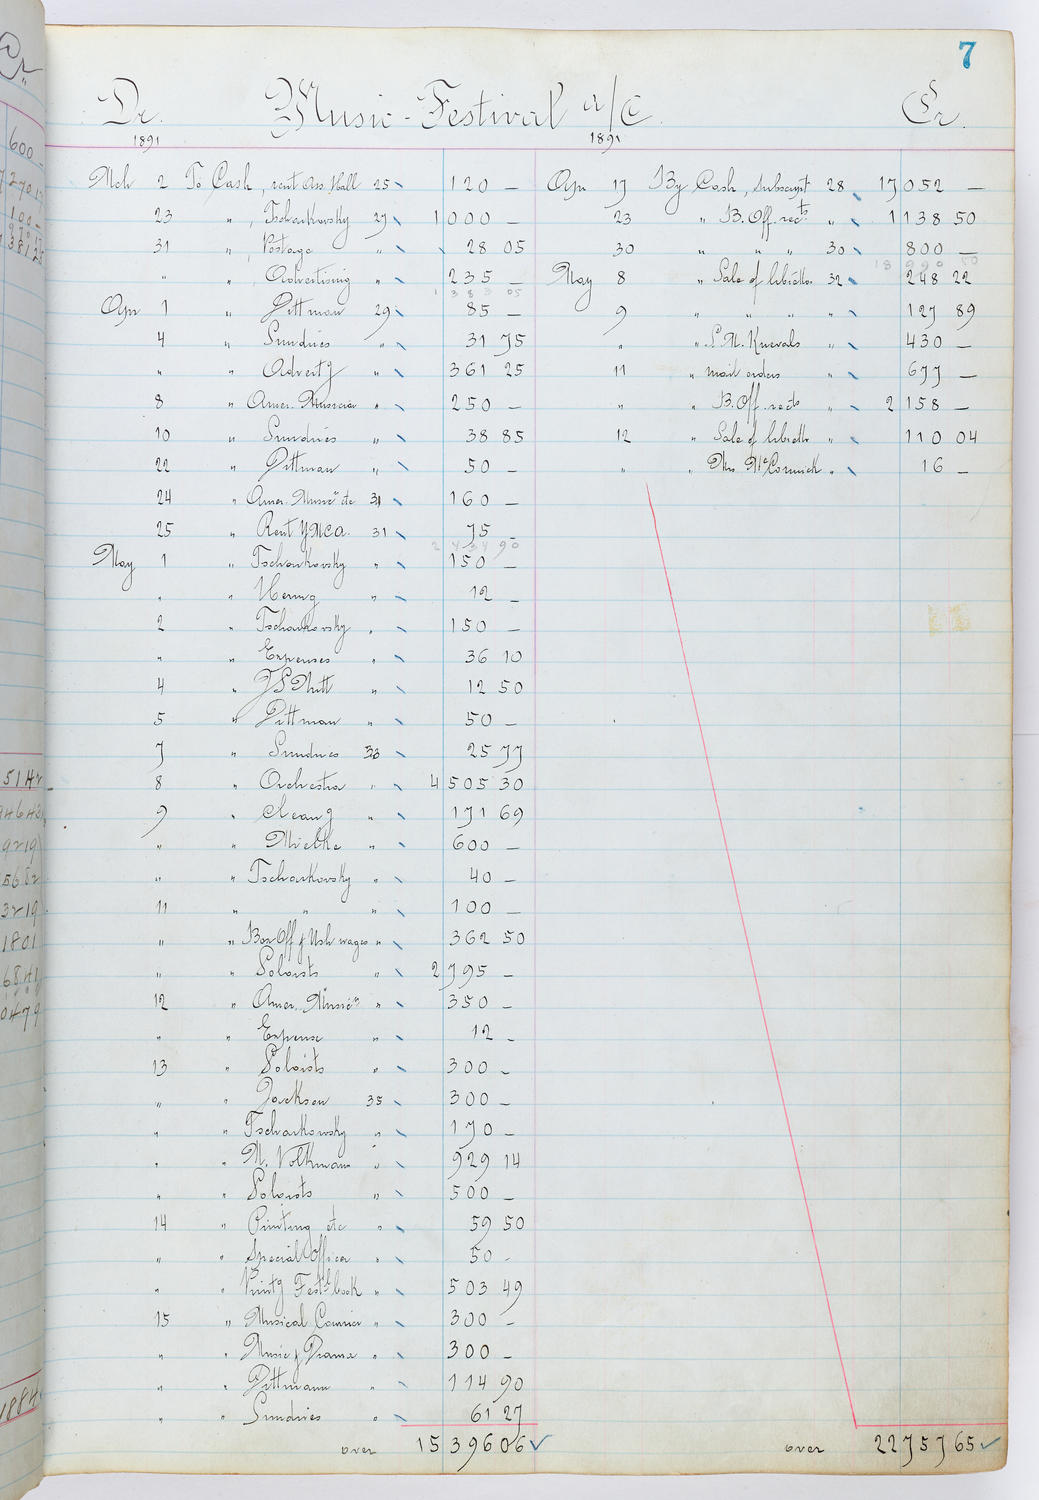 7
Dr. Music-Festival a/c. Cr.
1891 1891
Mch 2 To Cash, rent Ass. Hall 25 120 —
23 " , Tschaikovsky 27 1000 —
31 " , Postage " 28 05
" " , Advertising " 235 —
1 383 05
Apr 1 " Pittman 29 85 —
4 " Sundries " 31 75
" " Advertg " 361 25
8 " Amer. Musician " 250 —
10 " Sundries " 38 85
22 " Pittman " 50 —
24 " Amer. Musicn etc 31 160 —
25 " Rent YMCA. 31 75 —
2 434 90
May 1 " Tschaikovsky " 150 —
" " " 12 —
2 " Tschaikovsky " 150 —
" " Expenses " 36 10
4 " " 12 50
5 " Pittman " 50 —
7 " Sundries 33 25 77
8 " Orchestra " 4505 30
9 " Cleang " 171 69
" " Mielke " 600 —
" " Tschaikovsky " 40 —
11 " " " 100 —
" " Box Off & Ush wages " 362 50
" " Soloists " 2795 —
12 " Amer. Musicn " 350 —
" " Expense " 12 —
13 " Soloists " 300 —
" " Jackson 35 300 —
" " Tschaikowsky " 170 —
" " M. Volkmann " 929 14
" " Soloists " 500 —
14 " Printing etc " 59 50
" " Special Officer " 50 -
" " Printg Festl book " 503 49
15 " Musical Courier " 300 —
" " Music & Drama " 300 —
" " Pittmann " 114 90
" " Sundries " 61 27
over 15396 06
Apr 17 By Cash, Subscript 28 17052 —
23 " B. Off. rects " 1138 50
30 " " " 30 800 —
18 990 50
May 8 " Sale of libretto 32 248 22
9 " " " " 127 89
" " S.M. Knevals " 430 —
11 " mail orders " 677 —
" " B. Off. rects " 2158 —
12 " Sale of libretto " 110 04
" " Mrs McCormick " 16 —
over 22757 65